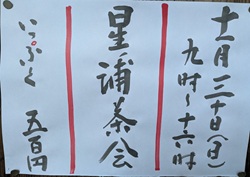 十一月三十日(日)
九時~十六時
星浦茶会
いっぷく 五百円